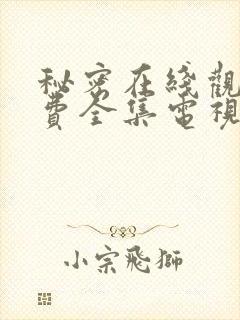 秘密在綫觀
費全集電視
小宗飛獅